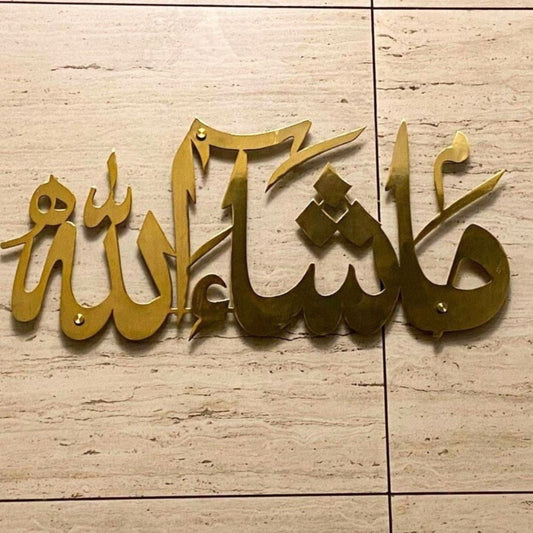 ماشاء الله